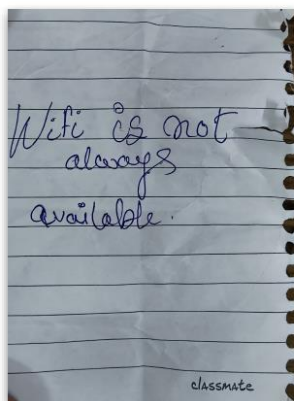 Wifi is not
always
available.
classmate